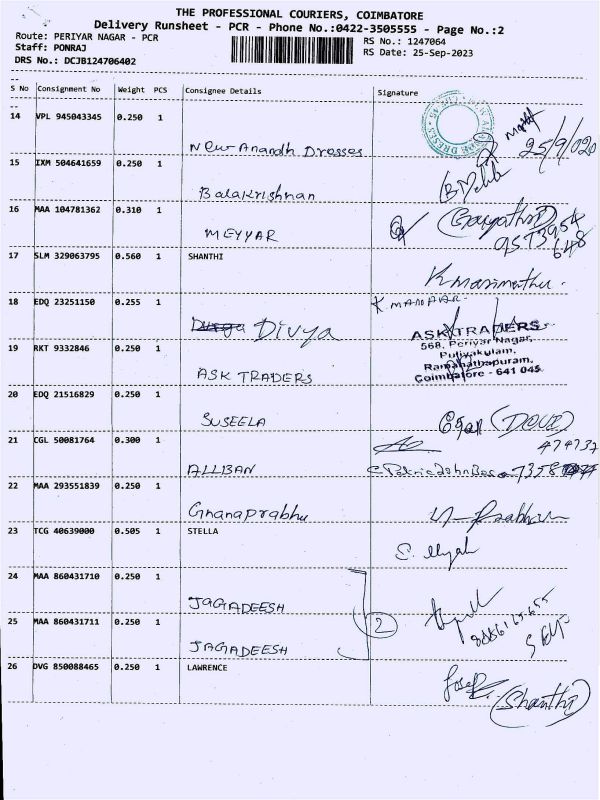 THE PROFESSIONAL COURIERS, COIMBATORE
Delivery Runsheet - PCR - Phone No.:0422-3505555 - Page No.:2
Route: PERIYAR NAGAR - PCR
Staff: PONRAJ
DRS No.: DCJB124706402
RS No.: 1247064
RS Date: 25-Sep-2023
S No Consignment No Weight PCS Consignee Details Signature
14 VPL 945043345 0.250 1
New Anandh Dresses 25/9/020
15 IXM 504641659 0.250 1
Balakrishnan
16 MAA 104781362 0.310 1
MEYYAR (Gayathri) 9573954
648
17 SLM 329063795 0.560 1 SHANTHI
K Marimuthu.
18 EDQ 23251150 0.255 1
Divya
19 RKT 9332846 0.250 1
ASK TRADERS
568, Periyar Nagar,
Puliyakulam,
Ramanathapuram,
Coimbatore - 641 045.
ASK TRADERS
20 EDQ 21516829 0.250 1
SUSEELA
21 CGL 50081764 0.300 1 474737
ALLIBAN 7358
22 MAA 293551839 0.250 1
Gnanaprabhu
23 TCG 40639000 0.505 1 STELLA
24 MAA 860431710 0.250 1
JAGADEESH
25 MAA 860431711 0.250 1 2
JAGADEESH
26 DVG 850088465 0.250 1 LAWRENCE
(Shanthi)